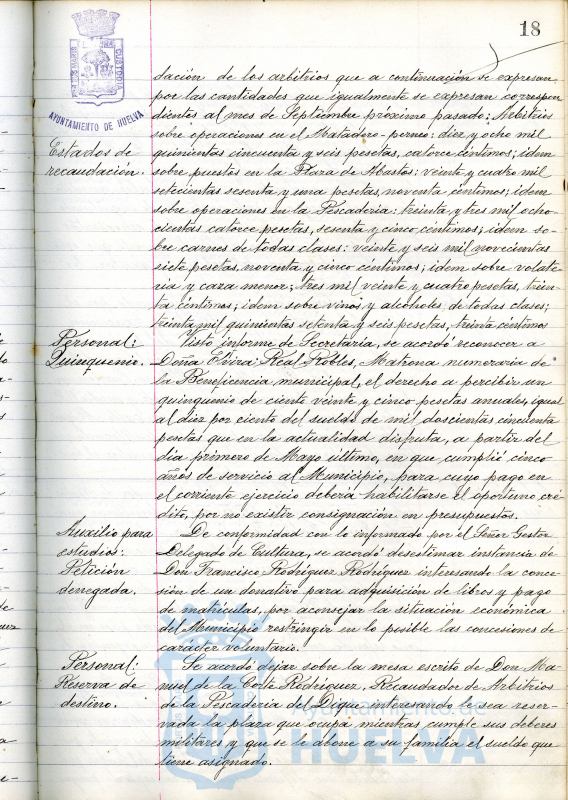 18
AYUNTAMIENTO DE HUELVA
dación de los arbitrios que a continuación se expresan
por las cantidades que igualmente se expresan correspon
dientes al mes de Septiembre próximo pasado: Arbitrios
sobre operaciones en el Matadero-pernéo: diez y ocho mil
Estados de
recaudación.
quinientas cincuenta y seis pesetas, catorce céntimos; idem
sobre puestos en la Plaza de Abastos: veinte y cuatro mil
setecientas sesenta y una pesetas, noventa céntimos; idem
sobre operaciones en la Pescadería: treinta y tres mil ocho
cientas catorce pesetas, sesenta y cinco céntimos; idem so-
bre carnes de todas clases: veinte y seis mil novecientas
siete pesetas, noventa y cinco céntimos; idem sobre volate-
ría y caza menor; tres mil veinte y cuatro pesetas, trein
ta céntimos; idem sobre vinos y alcoholes de todas clases;
treinta mil quinientas setenta y seis pesetas, treinta céntimos
Personal:
Quinquenio.
Visto informe de Secretaría, se acordó reconocer a
Doña Elvira Real Robles, Matrona numeraria de
la Beneficencia municipal, el derecho a percibir un
quinquenio de ciento veinte y cinco pesetas anuales, igual
al diez por ciento del sueldo de mil doscientas cincuenta
pesetas que en la actualidad disfruta, a partir del
día primero de Mayo último, en que cumplió cinco
años de servicio al Municipio, para cuyo pago en
el corriente ejercicio deberá habilitarse el oportuno cré
dito, por no existir consignación en presupuestos.
Auxilio para
estudios:
Petición
denegada.
De conformidad con lo informado por el Señor Gestor
Delegado de Cultura, se acordó desestimar instancia de
Don Francisco Rodríguez Rodríguez interesando la conce-
sión de un donativo para adquisición de libros y pago
de matrículas, por aconsejar la situación económica
del Municipio restringir en lo posible las concesiones de
carácter voluntario.
Personal:
Reserva de
destino.
Se acordó dejar sobre la mesa escrito de Don Ma-
nuel de la Corte Rodríguez, Recaudador de Arbitrios
de la Pescadería del Dique interesando le sea reser-
vada la plaza que ocupa mientras cumple sus deberes
militares y que se le abone a su familia el sueldo que
tiene asignado.
HUELVA